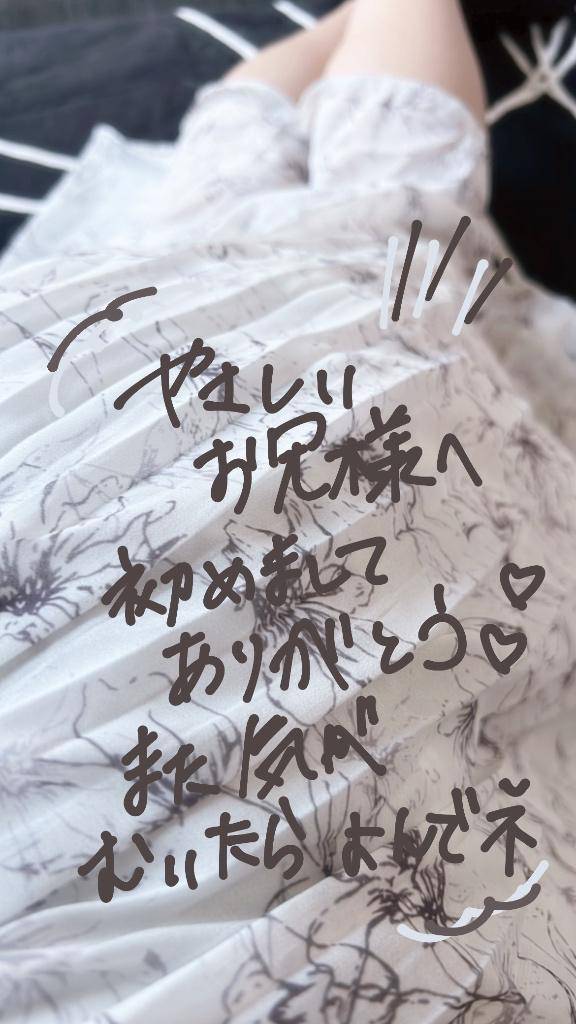 やさしい
お兄様へ
初めまして
ありがとう♡♡
また気が
むいたらよんでネ